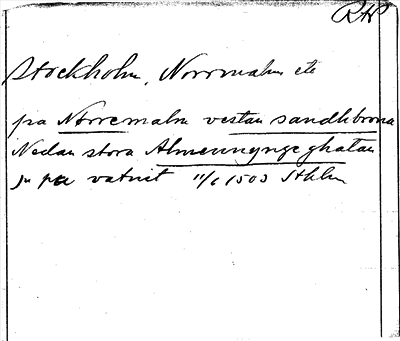 RAP
Stockholm, Norrmalm etc
pa Norremalm vestan sandhbrona
Nedan stora Almennynge ghatan
jn pa vatnit 11/6 1503 Sthlm